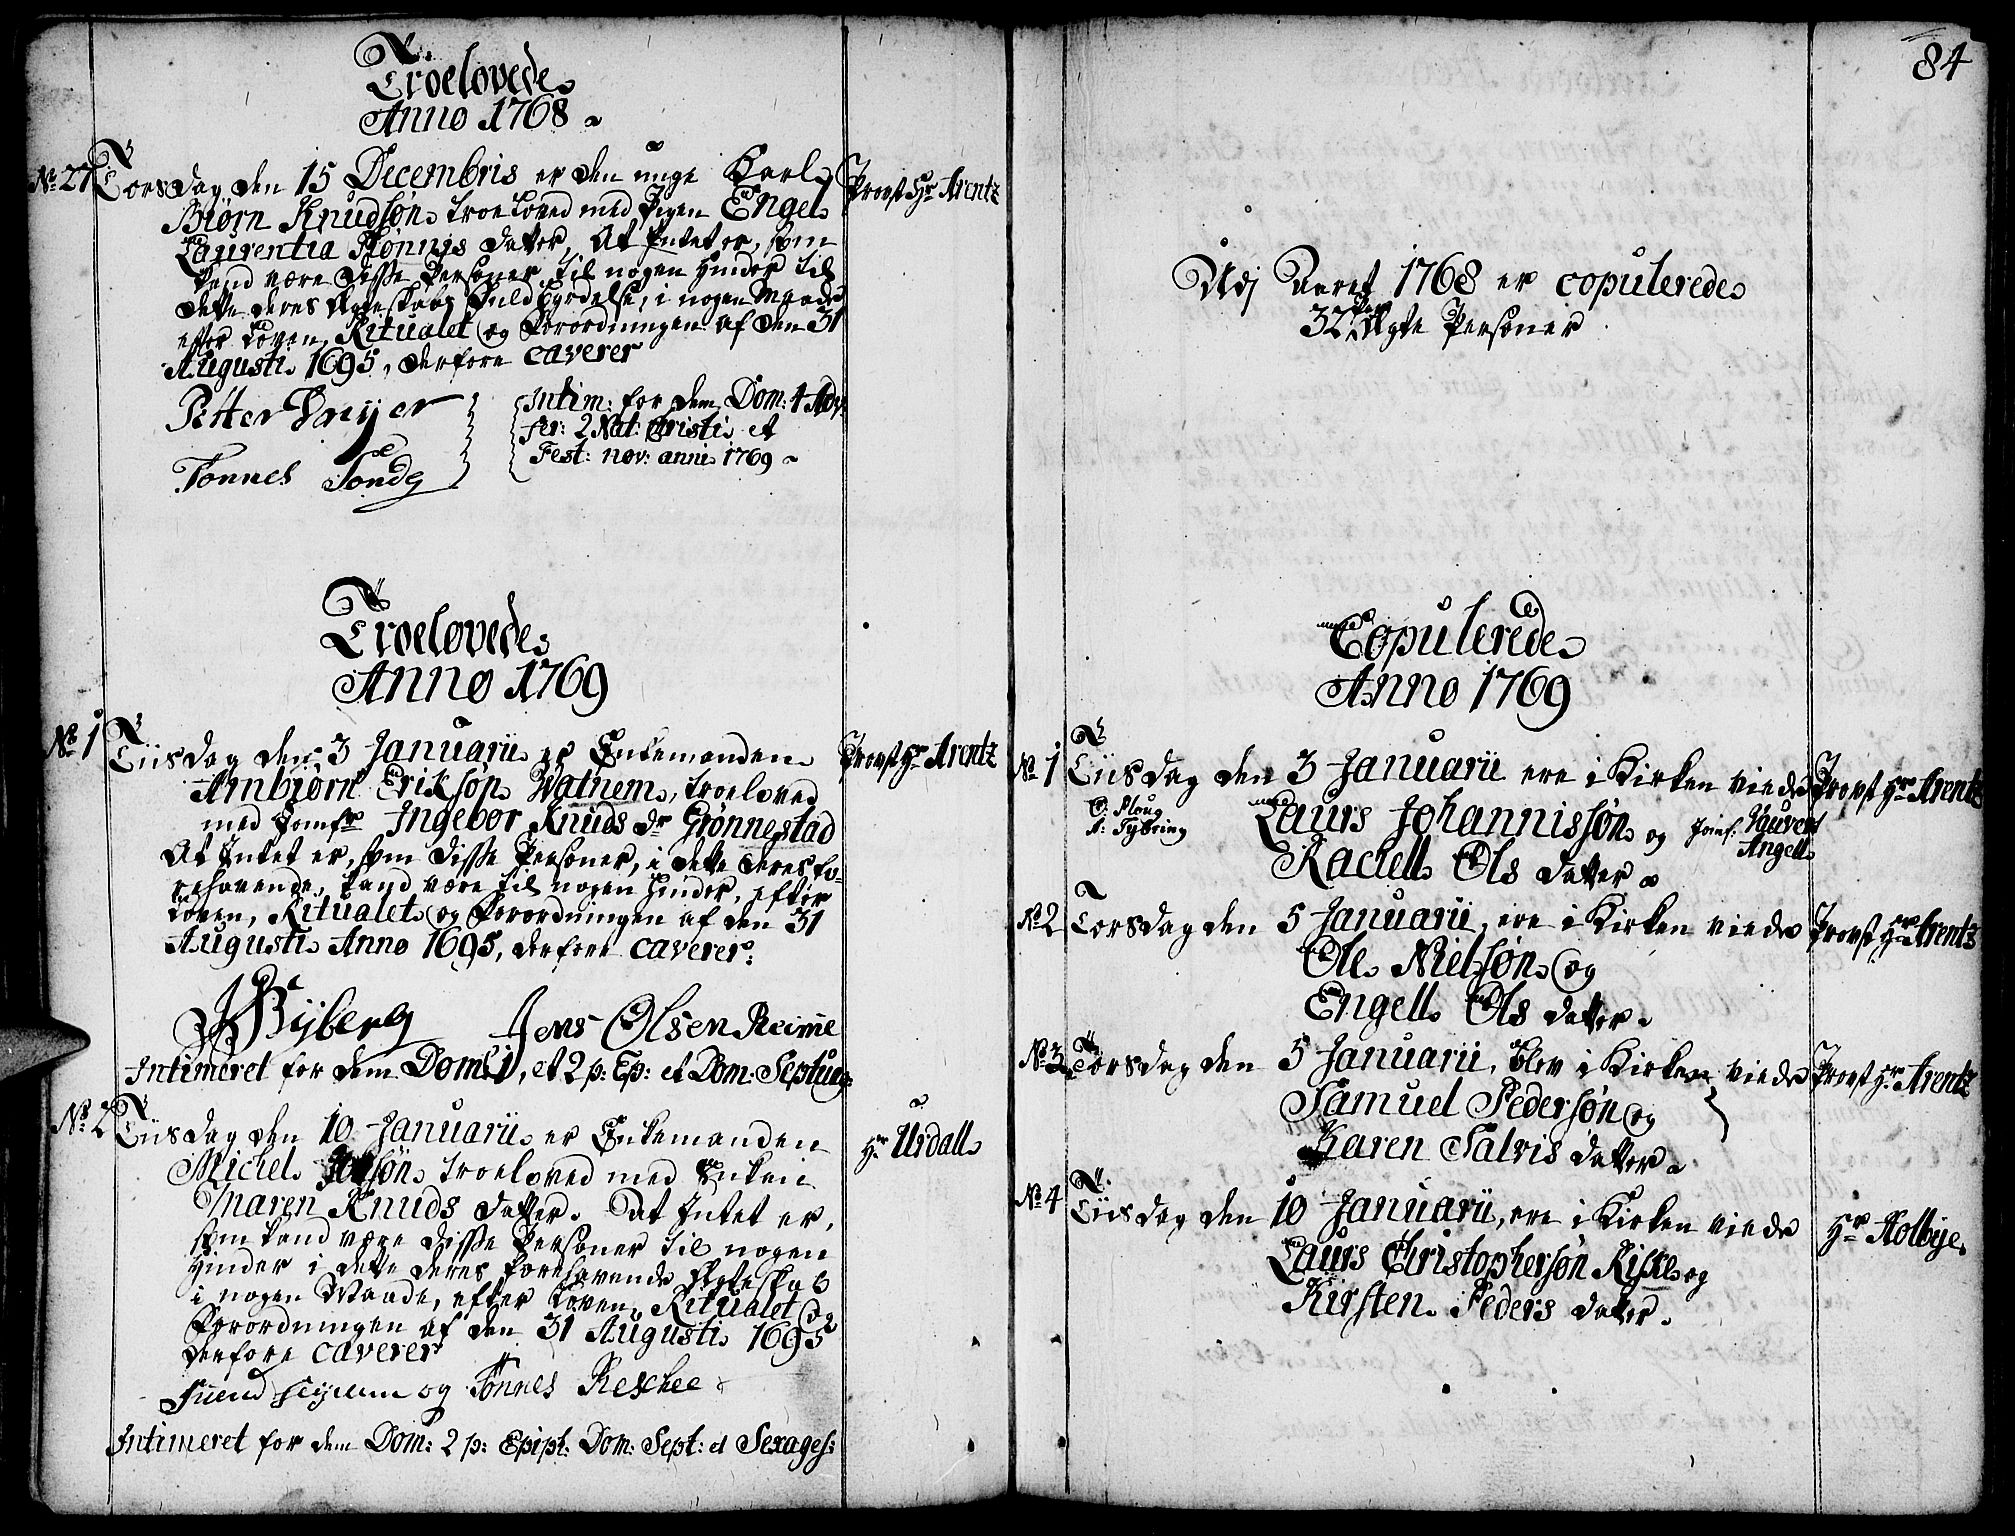 Troelovede
Anno 1768
No 27 Torsdag den 15 Decembris er den unge Karl Provst Hr Arentz
Biørn Knudsøn troeloved med Pigen Engel
Laurentia Tønnis datter, At Intet er, som
kand være disse Personer til nogen Hinder til
dette deres Ægteskabs Fuldbyrdelse, i nogen Maade
efter Loven, Ritualet og Forordningen af den 31
Augusti 1695, derfore caverer
Petter Dreyer
Tonnes
Intim: for dem Dom: 4 Adv:
fer: 2 Nat: Christi et
Fest: nov: anni 1769
Troelovede
Anno 1769
No 1 Tiisdag den 3 Januarii er Enkemanden Provst Hr Arentz
Ambiørn Eriksøn Watnem, troeloved
med Jomfr Ingebor Knuds dr Grønnestad
At Intet er, som disse Personer, i dette deres fo-
rehavende, kand være til nogen Hinder, efter
Loven, Ritualet og Forordningen af den 31
Augusti Anno 1695, derfore caverer:
Byberg Jens Olsen Reime
Intimeret for dem Dom: 1, et 2 p: Ep: et Dom: Septuag:
No 2 Tiisdag den 10 Januarii er Enkemanden Hr Urdall
Michel troeloved med Enken
Maren Knuds datter. At Intet er,
som kand være disse Personer til nogen
Hinder i dette deres forehavende Ægteskab
i nogen Maade, efter Loven, Ritualet og
Forordningen af den 31 Augusti 1695
derfore caverer
Suend og Tønnes Reschee
Intimeret for dem Dom: 2 p: Epiph: Dom: Sept: et Sexages:
84
Udj Aaret 1768 er copulerede
32 Par Ægte Personer
Copulerede
Anno 1769
No 1 Tiisdag den 3 Januarii ere i Kirken viede Provst Hr Arentz
O: Ploug
N: Tybring
Laurs Johannissøn og Jomf: Lauver
Angell
Rachell Ols datter
No 2 Torsdag den 5 Januarii, ere i Kirken viede Provst Hr Arentz
Ole Nielsøn og
Engell Ols datter.
No 3 Torsdag den 5 Januarii, blev i Kirken viede Provst Hr Arentz
Samuel Pedersøn og
Karen Salvis datter.
No 4 Tiisdag den 10 Januarii, ere i Kirken viede Hr Holbye
Laurs Christophersøn Riske og
Kirsten Peders datter.